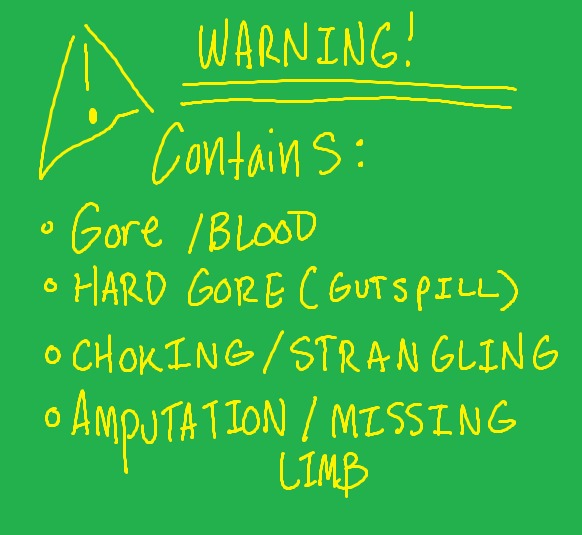 WARNING!
Contains:
• Gore / BLOOD
• HARD GORE (GUTSPILL)
• CHOKING / STRANGLING
• AMPUTATION / MISSING
LIMB